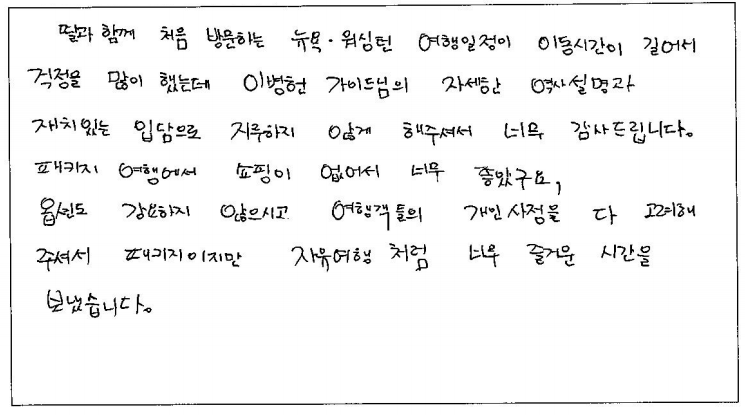 딸과 함께 처음 방문하는 뉴욕·워싱턴 여행일정이 이동시간이 길어서
걱정을 많이 했는데 이병헌 가이드님의 자세한 역사설명과
재치있는 입담으로 지루하지 않게 해주셔서 너무 감사드립니다.
패키지 여행에서 쇼핑이 없어서 너무 좋았구요,
옵션도 강요하지 않으시고 여행객들의 개인사정을 다 고려해
주셔서 패키지이지만 자유여행 처럼 너무 즐거운 시간을
보냈습니다.